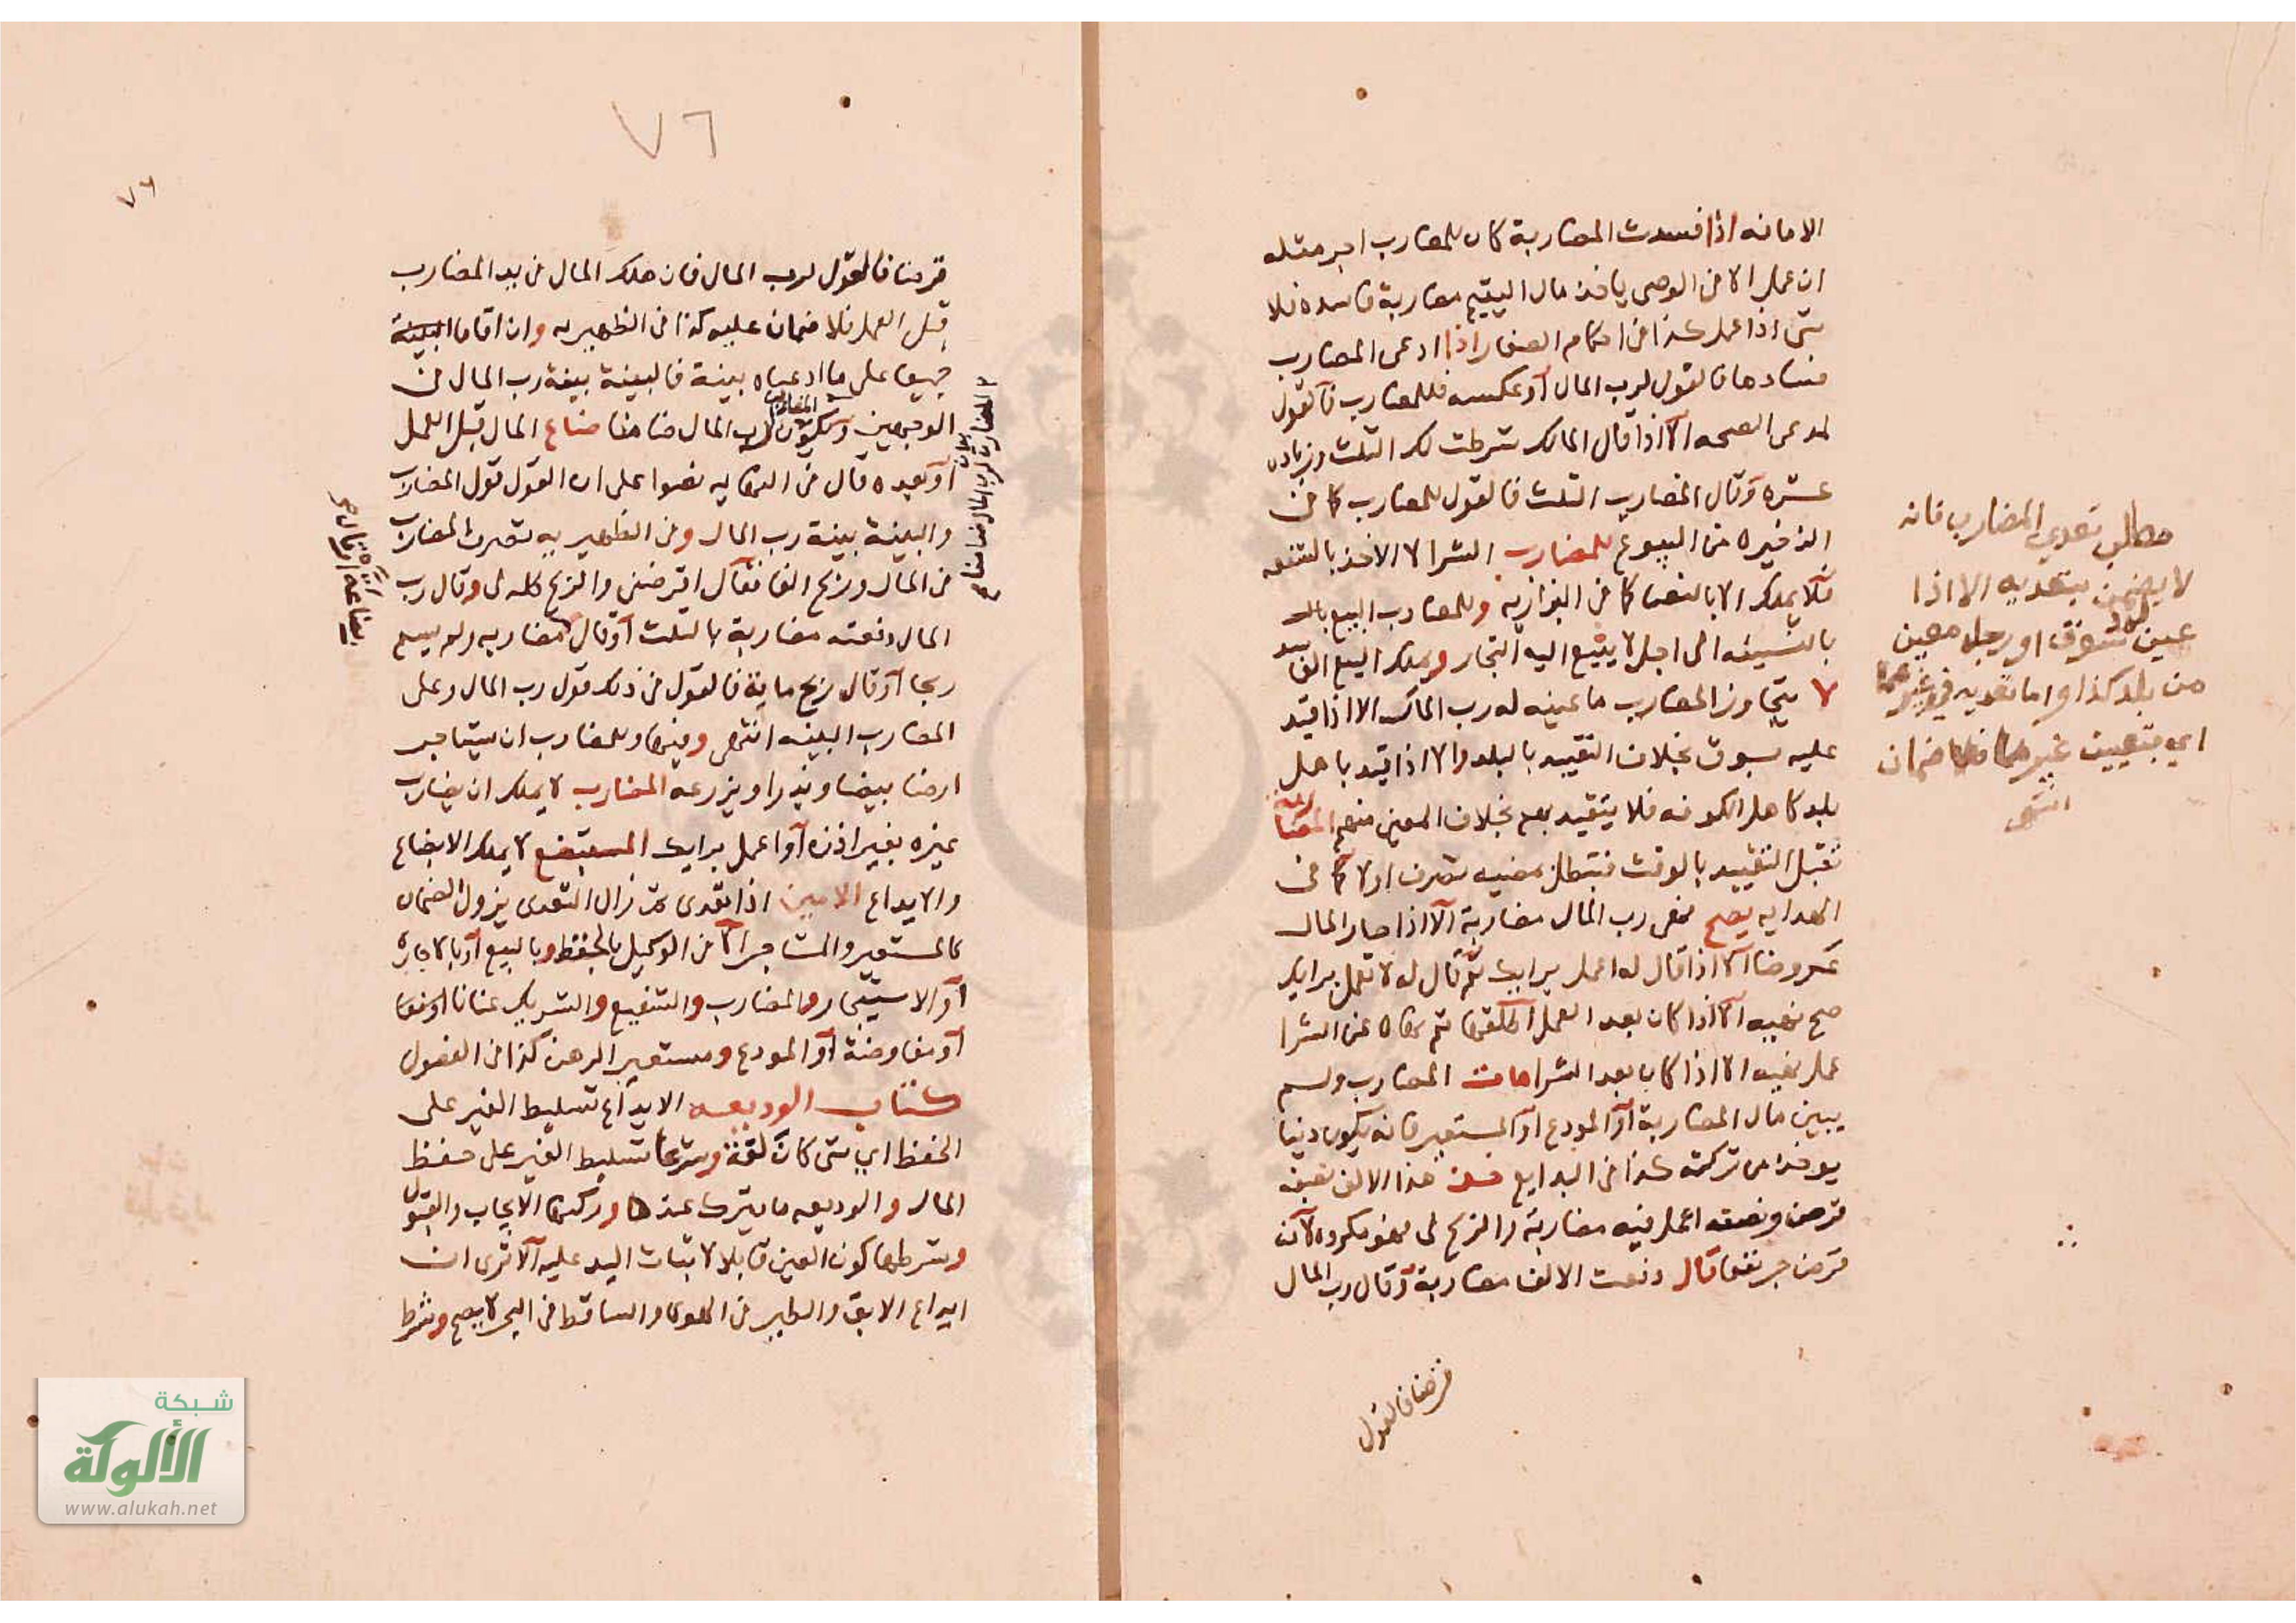 الامانه اذا فسدت المضاربة كان للمضارب اجر مثله
ان عمل الا في الوصي ياخذ مال اليتيم مضاربة فاسده فلا
شي اذا عمل كذا في احكام الصغار اذا ادعى المضارب
فسادها فالقول لرب المال او عكسه فللمضارب فالقول
لمدعي الصحه الا اذا قال المالك شرطت لك الثلث وزياده
عشره وقال المضارب الثلث فالقول للمضارب كما في
الذخيره من البيوع للمضارب الشرا لا الاخذ بالشفعه
فلا يملك الا بالنص كما في البزازيه وللمضارب البيع
بالنسيئه الى اجل لا يبيع اليه التجار ويملك البيع الفاسد
لا يتجاوز المضارب ما عينه له رب المال الا اذا قيد
عليه بسوق بخلاف التقييد بالبلد والا اذا قيد باهل
بلد كاهل الكوفه فلا يتقيد بهم بخلاف المعين منهم المضاربة
تقبل التقييد بالوقت فتبطل بمضيه تصرف اولا كما في
الهدايه يصح نهي رب المال مضاربة الا اذا صار المال
عروضا الا اذا قال له اعمل برايك ثم قال له لا تعمل برايك
صح نهيه الا اذا كان بعد العمل اطلقها ثم نهاه عن الشرا
عمل نهيه الا اذا كان بعد الشرا مات المضارب ولم
يبين مال المضاربة او المودع او المستعير فانه يكون دينا
يوخذ من تركته كذا في البدايع خذ هذا الالف نصفه
قرض ونصفه اعمل فيه مضاربة والربح لي فهو مكروه لانه
قرض جر نفعا قال دفعت الالف مضاربة وقال رب المال
قرضا فالقول
مطلب تعدي المضارب فانه
لا يضمن بتعديه الا اذا
عين له سوق او رجل معين
من بلد كذا واما تعديه في غيرهما
اي بتعيين غيرهما فلا ضمان
انتهى
٧٦
٧٦
قرضا فالقول لرب المال فان هلك المال في يد المضارب
قبل العمل فلا ضمان عليه كذا في الظهيريه وان اقاما البينة
جميعا على ما ادعياه بينة فالبينة بينة رب المال في
الوجهين ويكون المضارب لرب المال ضامنا ضاع المال قبل العمل
او بعده قال في النهايه نصوا على ان القول قول المضارب
والبينة بينة رب المال وفي الظهيريه تصرف المضارب
في المال وربح الفا فقال اقرضتني والربح كله لي وقال رب
المال دفعته مضاربة بالثلث او قال مضاربه ولم يسم
ربحا او قال ربح ماية فالقول في ذلك قول رب المال وعلى
المضارب البينه انتهى وفيها وللمضارب ان يستاجر
ارضا بيضا وبذرا ويزرعه المضارب لا يملك ان يضارب
غيره بغير اذنه او اعمل برايك المستبضع لا يملك الابضاع
والايداع الامين اذا تعدى ثم زال التعدى يزول الضمان
كالمستعير والمستاجر الا في الوكيل بالحفظ وبالبيع او بالاجاره
او الاستيجار والمضارب والشفيع والشريك عنانا
او مفاوضة او المودع ومستعير الرهن كذا في الفصول
كتاب الوديعه الايداع تسليط الغير على
الحفظ اي شي كان لغة وشرعا تسليط الغير على حفظ
المال والوديعه ما يترك عنده وركنها الايجاب والقبول
وشرطها كون العين قابلا لاثبات اليد عليه الا ترى ان
ايداع الابق والطير في الهوى والساقط في البحر لا يصح وشرط
بضاعة او قال صح
شبكة
الألوكة
www.alukah.net